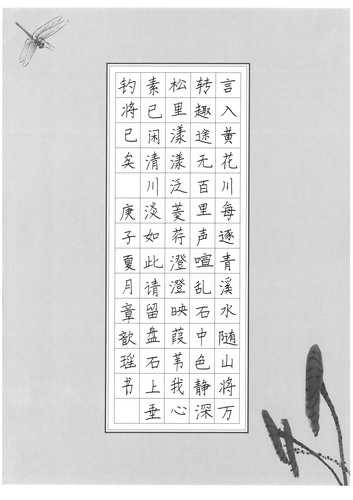 言入黄花川每逐青溪水随山将万
转趣途无百里声喧乱石中色静深
松里漾漾泛菱荇澄澄映葭苇我心
素已闲清川淡如此请留盘石上垂
钓将已矣 庚子夏月章歆瑶书